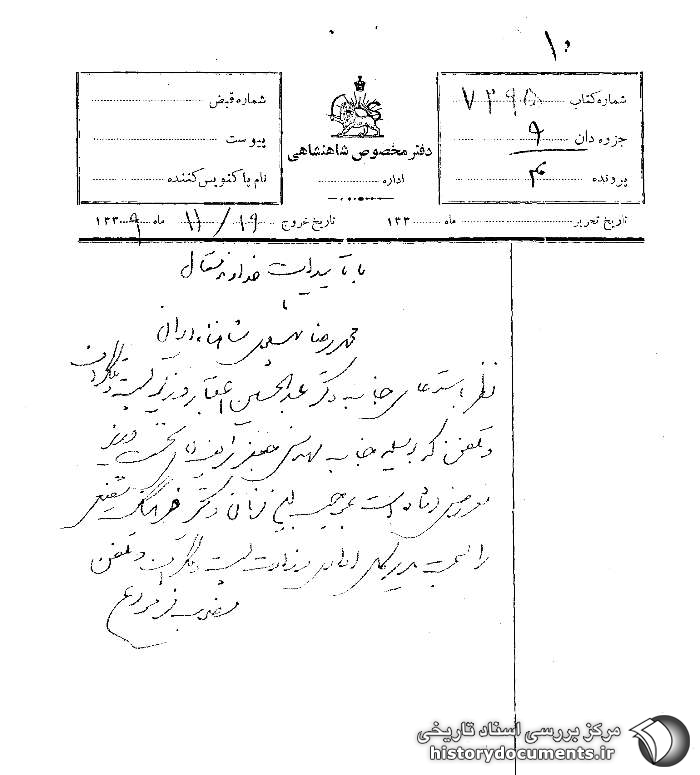 ۱۰
شماره کتاب ۷۲۹۵
جزوه دان ۹
پرونده ۴
دفتر مخصوص شاهنشاهی
اداره
شماره قبض
پیوست
نام پاکنویس کننده
تاریخ تحریر ماه ۱۳۳
تاریخ خروج ۱۹/۱۱ ماه ۱۳۳۹
با تأییدات خداوند متعال
ما
محمدرضا پهلوی شاهنشاه ایران
نظر باستدعای جناب دکتر عبدالحسین اعتبار وزیر پست و تلگراف
و تلفن که بوسیله جناب مهندس جعفر شریف امامی نخست وزیر
بموجب این فرمان دکتر فرهنگ شفیعی
را بسمت مدیر کل وزارت پست و تلگراف و تلفن
منصوب فرمودیم
مرکز بررسی اسناد تاریخی
historydocuments.ir